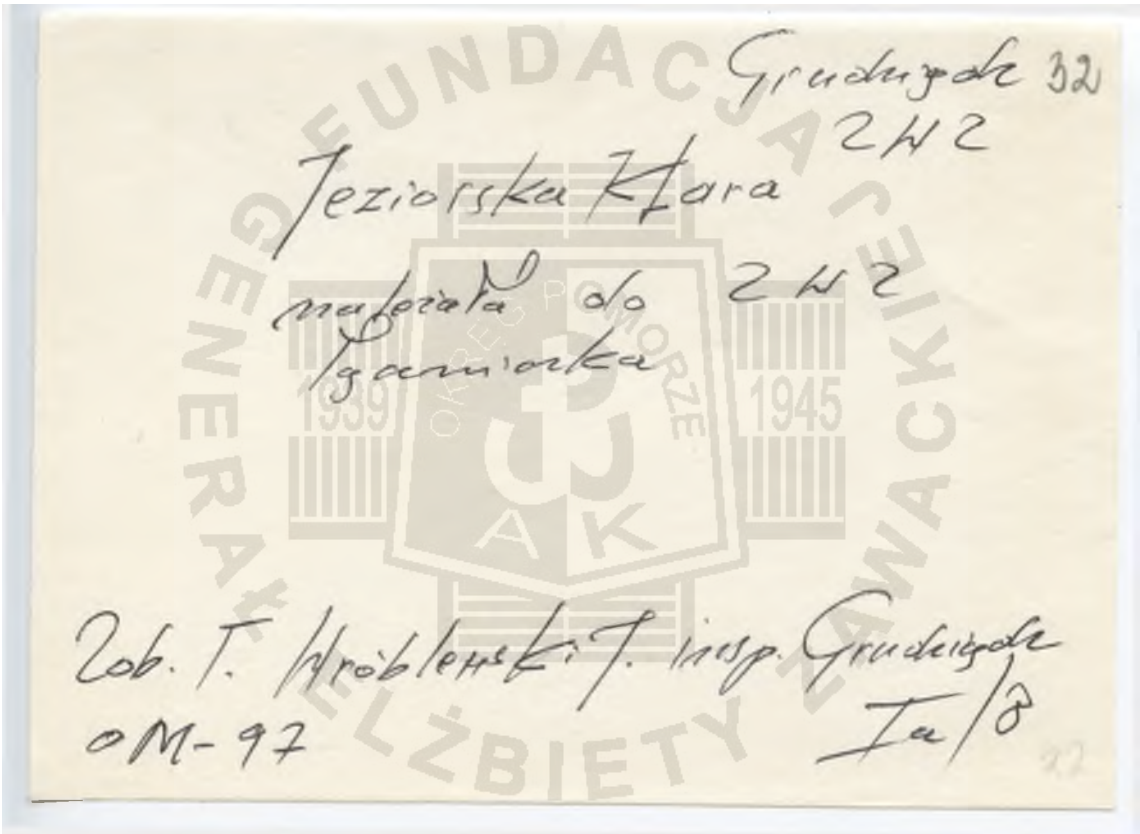 Grudziądz 32
ZWZ
Jeziorska Klara
należała do ZWZ
Zob. T. Wróblewski J. insp. Grudziądz
OM-97 Ia/8
FUNDACJA GENERAŁ ELŻBIETY ZAWACKIEJ
OKRĘG POMORZE
1939 1945
AK